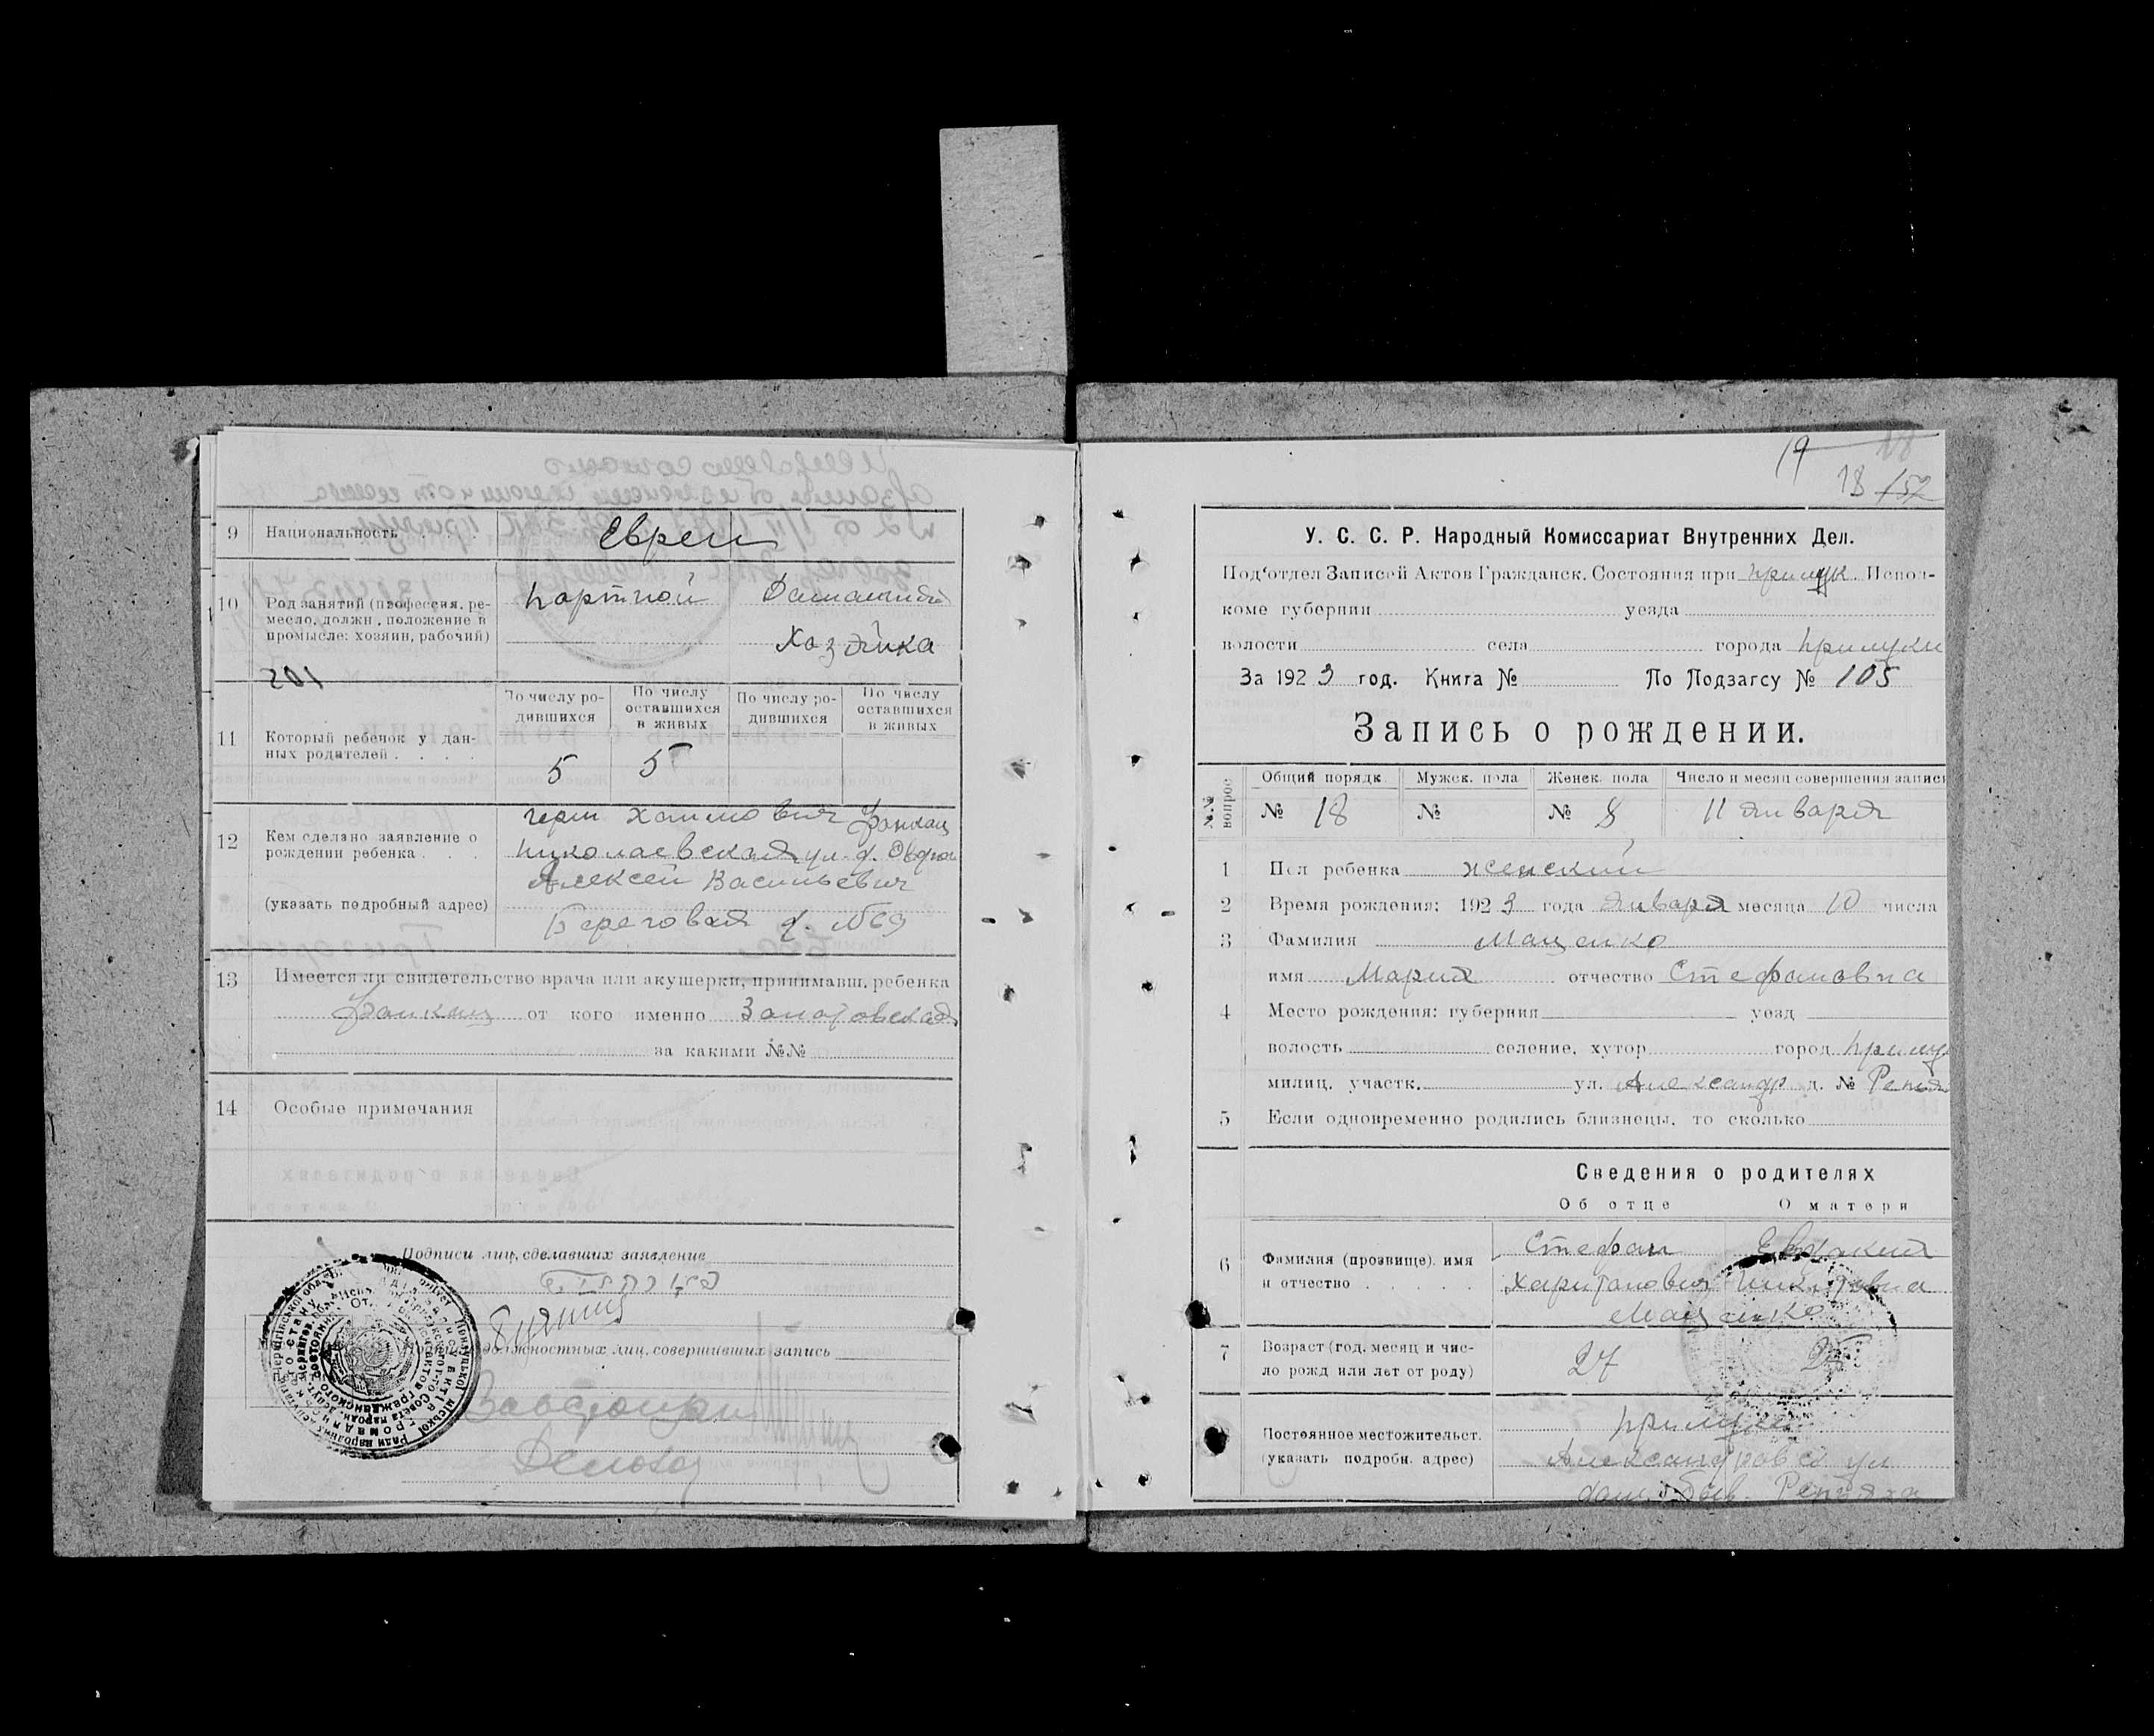 9 Национальность . . . Евреи
10 Род занятий (профессия, ре-
месло, должн., положение в
промысле: хозяин, рабочий)
портной
Домашняя
Хозяйка
201
По числу ро-
дившихся
По числу
оставшихся
в живых
По числу ро-
дившихся
По число
оставшихся
в живых
11 Который ребенок у дан-
ных родителей . . . .
5 5
12 Кем сделано заявление о
рождении ребенка . . .
(указать подробный адрес)
Герш Хаимович
Николаевская ул. д.
Алексей Васильевич
Береговая д. №69
13 Имеется ли свидетельство врача или акушерки, принимавш. ребенка
от кого именно
за какими №№
14 Особые примечания
Подписи лиц, сделавших заявление
должностных лиц, совершивших запись
19 18
18 152
У. С. С. Р. Народный Комиссариат Внутренних Дел.
Под'отдел Записей Актов Гражданск. Состояния при Прилук. Испол-
коме губернии уезда
волости села города Прилуки
За 1923 год. Книга № По Подзагсу № 105
Запись о рождении.
№.№ вопрос.
Общий порядк. Мужск. пола Женск. пола Число и месяц совершения записи
№ 18 № № 8 11 января
1 Пол ребенка женский
2 Время рождения: 1923 года января месяца 10 числа
3 Фамилия Маценко
имя Мария отчество Стефановна
4 Место рождения: губерния уезд
волость селение, хутор город Прилу
милиц. участк. ул. Александр д. № Репях
5 Если одновременно родились близнецы, то сколько
Сведения о родителях
Об отце О матери
6 Фамилия (прозвище), имя
и отчество . . . . . .
Стефан Евдокия
Харитонович Никитовна
Маценко
7 Возраст (год, месяц и чис-
ло рожд или лет от роду)
27
Постоянное местожительст.
(указать подробн. адрес)
Прилуки
Александровск ул
дом. быв. Репяха